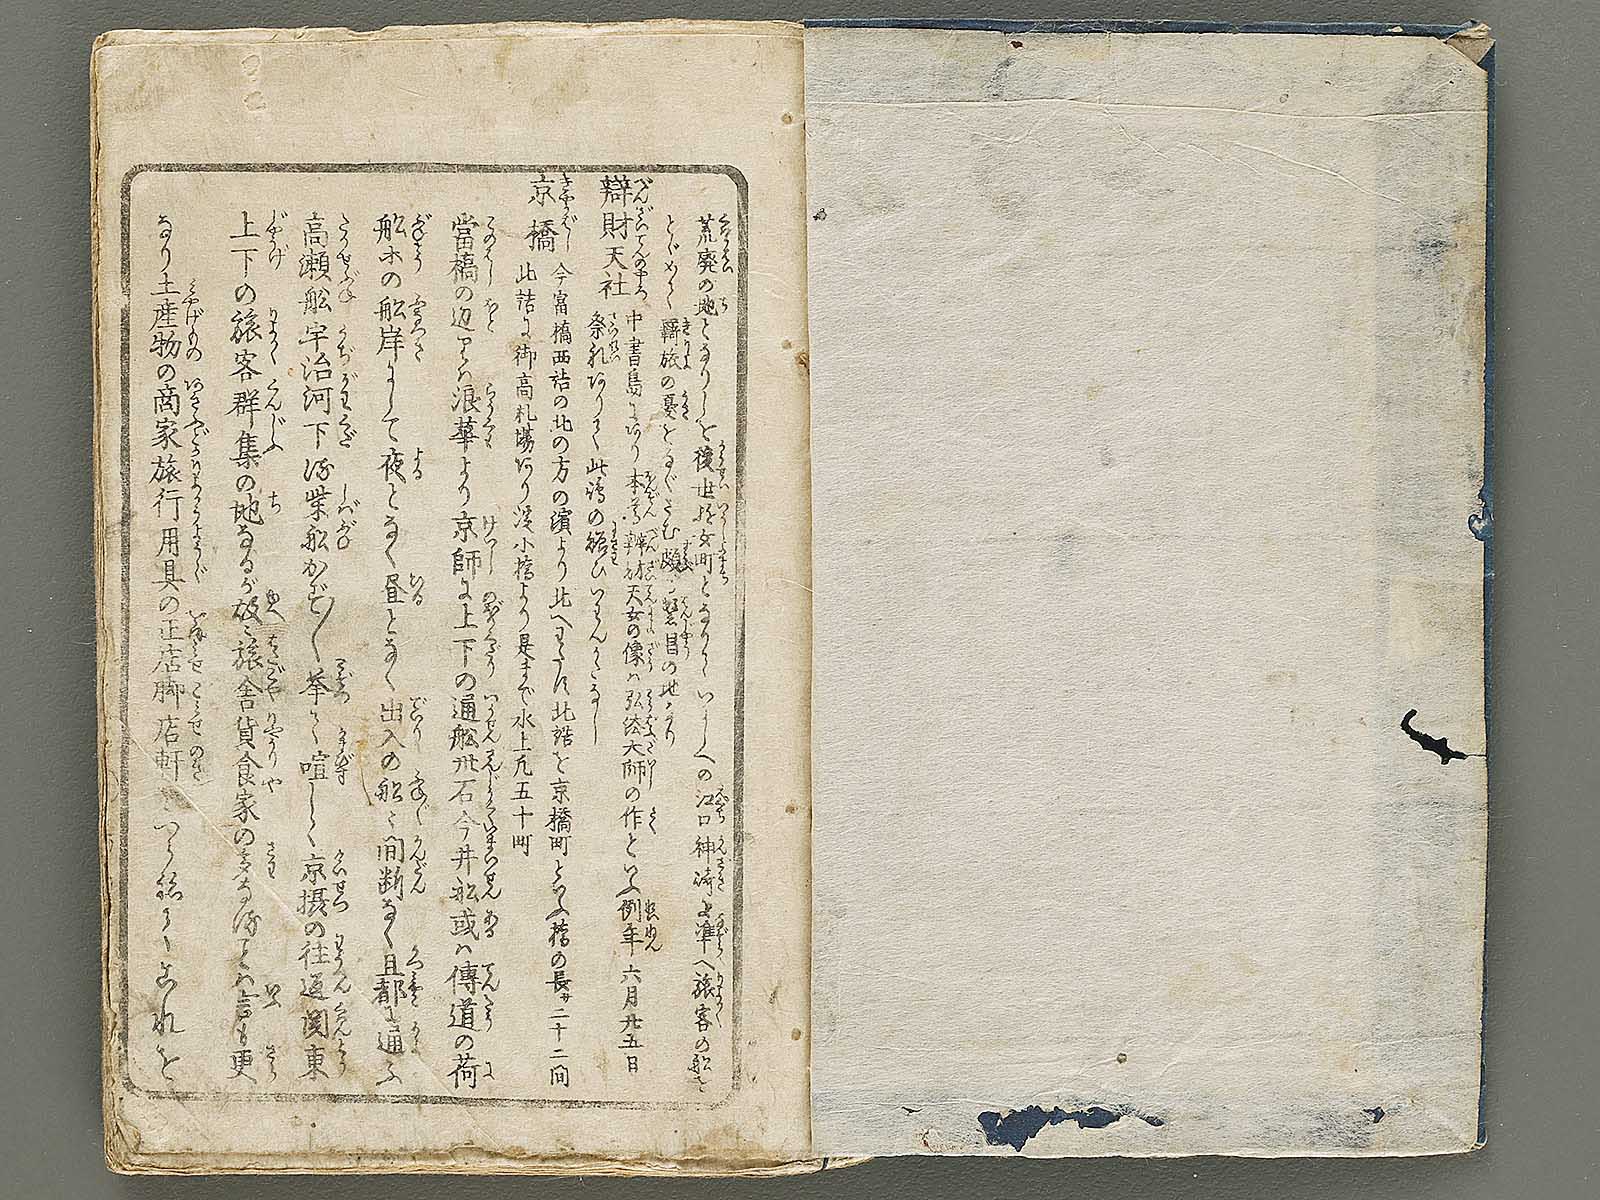 荒廃の地となりしを後世遊女町となりていにしへの江口神崎に準へ旅客の船を
とゞめて羇旅の憂をなぐさむ頗る繋昌の地なり
辯財天社 中書島にあり本尊辨財天女の像ハ弘法大師の作といふ例年六月廿五日
祭礼ありて此湊の賑ひいはんかたなし
京橋 今富橋西詰の北の方の濱より北へわたす北詰を京橋町といふ橋の長サ二十二間
此詰に御高札場あり淀小橋より是まで水上凡五十町
當橋の辺りハ浪華より京師に上下の通船卅石今井船或ハ傳道の荷
船木の船岸にして夜となく昼となく出入の船々間断なく且都に通ふ
高瀬船宇治河下す柴船かず〱挙て喧しく京摂の往返関東
上下の旅客群集の地なるが故に旅舎貨食家の多なることハ言も更
なり土産物の商家旅行用具の正店脚店軒をつらねてこれを